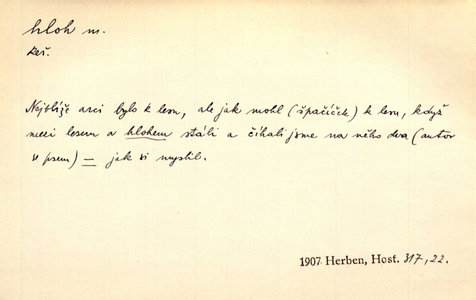 hloh m.
keř.
Nejblíže arci bylo k lesu, ale jak mohl (špačíček) k lesu, když
mezi lesem a hlohem stáli a číhali jsme na něho dva (autor
se psem) — jak si myslil.
1907 Herben, Host. 317, 22.